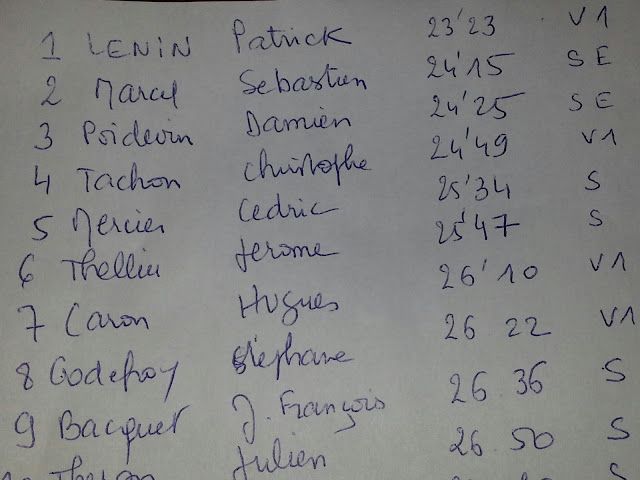 1 LENIN Patrick 23'23 V1
2 Marcel Sebastien 24'15 SE
3 Poidevin Damien 24'25 SE
4 Tachon Christophe 24'49 V1
5 Mercier Cedric 25'34 S
6 Jerome 25'47 S
7 Caron Hugues 26'10 V1
8 Godefroy Stéphane 26 22 V1
9 Bacquet J. François 26 36 S
Julien 26 50 S